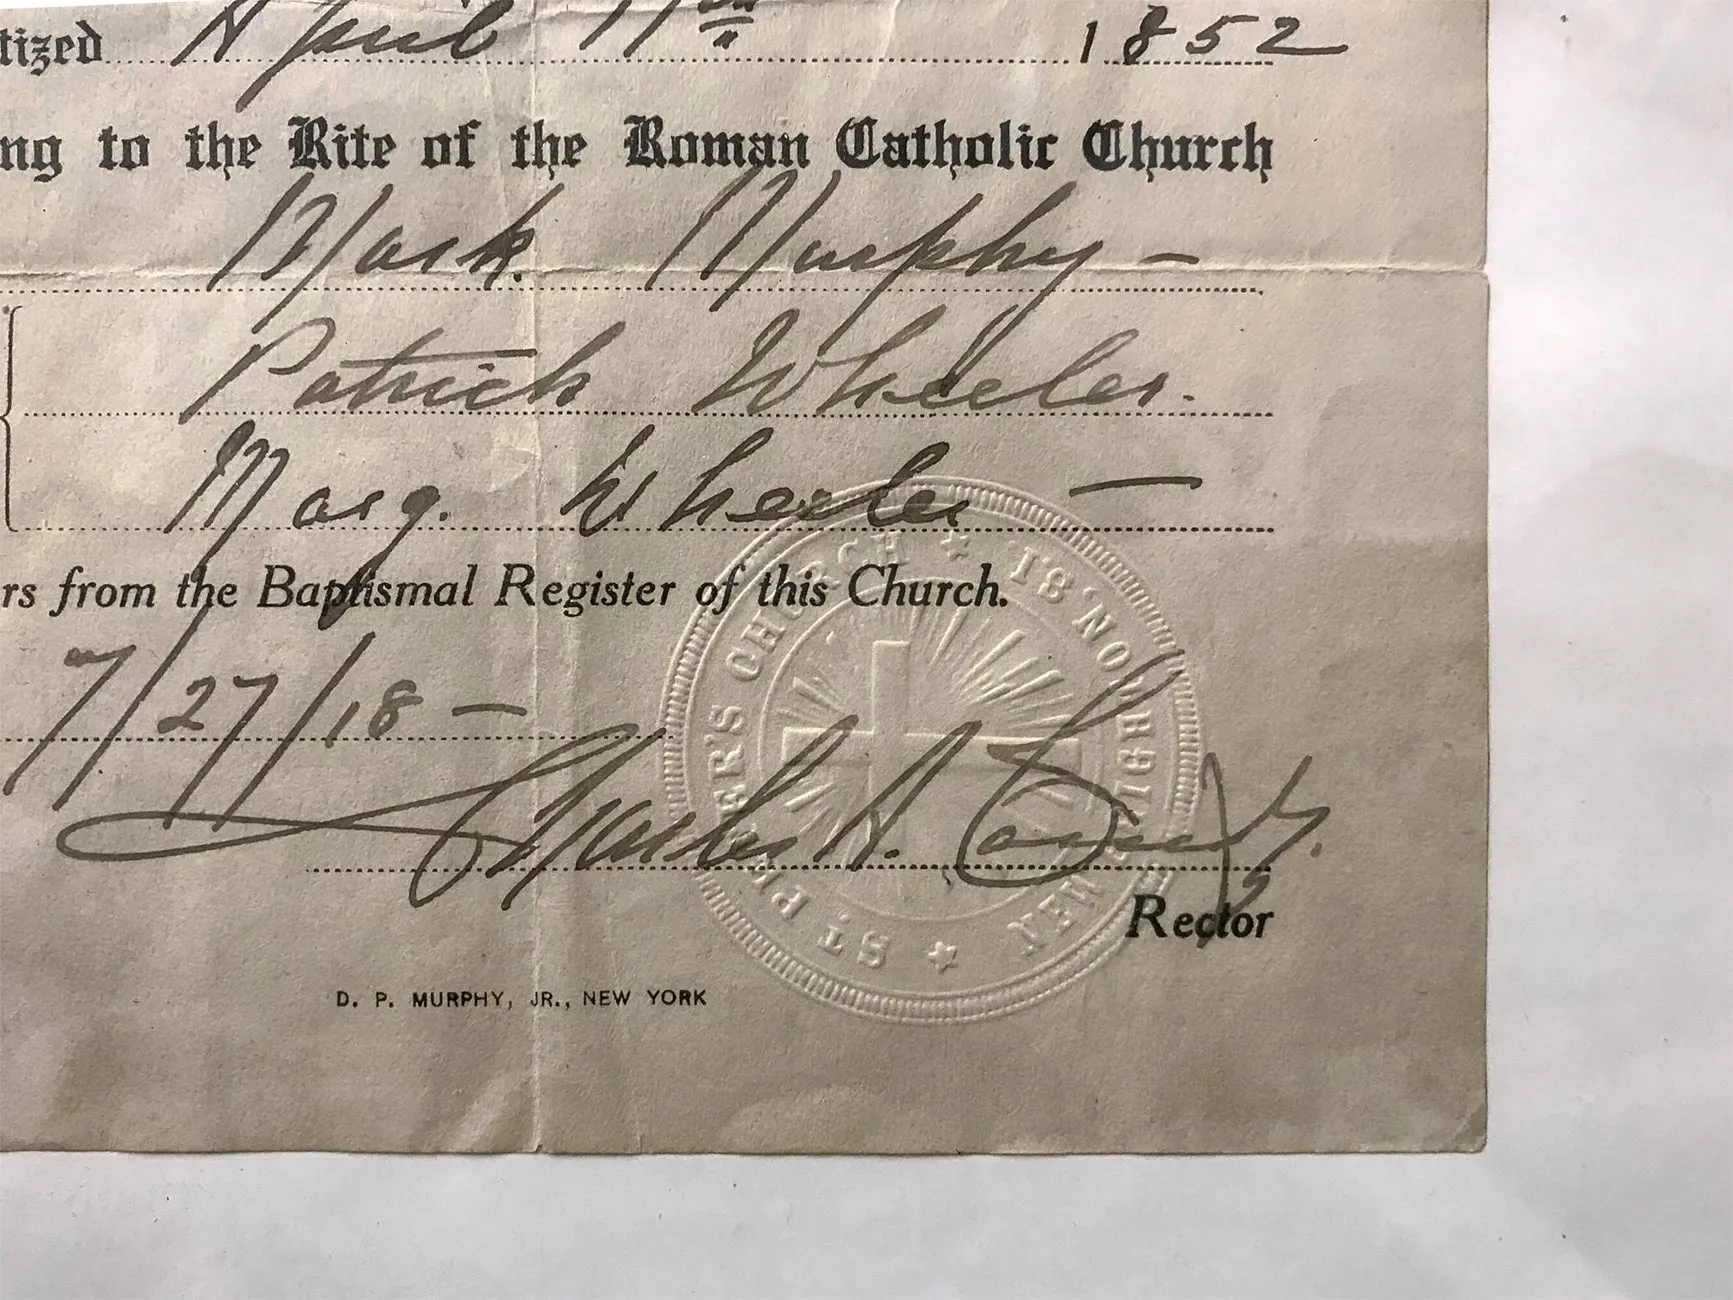 tized April 11th 1852
ng to the Rite of the Roman Catholic Church
Mark Murphy —
Patrick Wheeler.
Marg. Wheeler —
rs from the Baptismal Register of this Church.
7/27/18 —
Charles A.
Rector
ST. PETER'S CHURCH
NEW BRIGHTON, S.I.
D. P. MURPHY, JR., NEW YORK